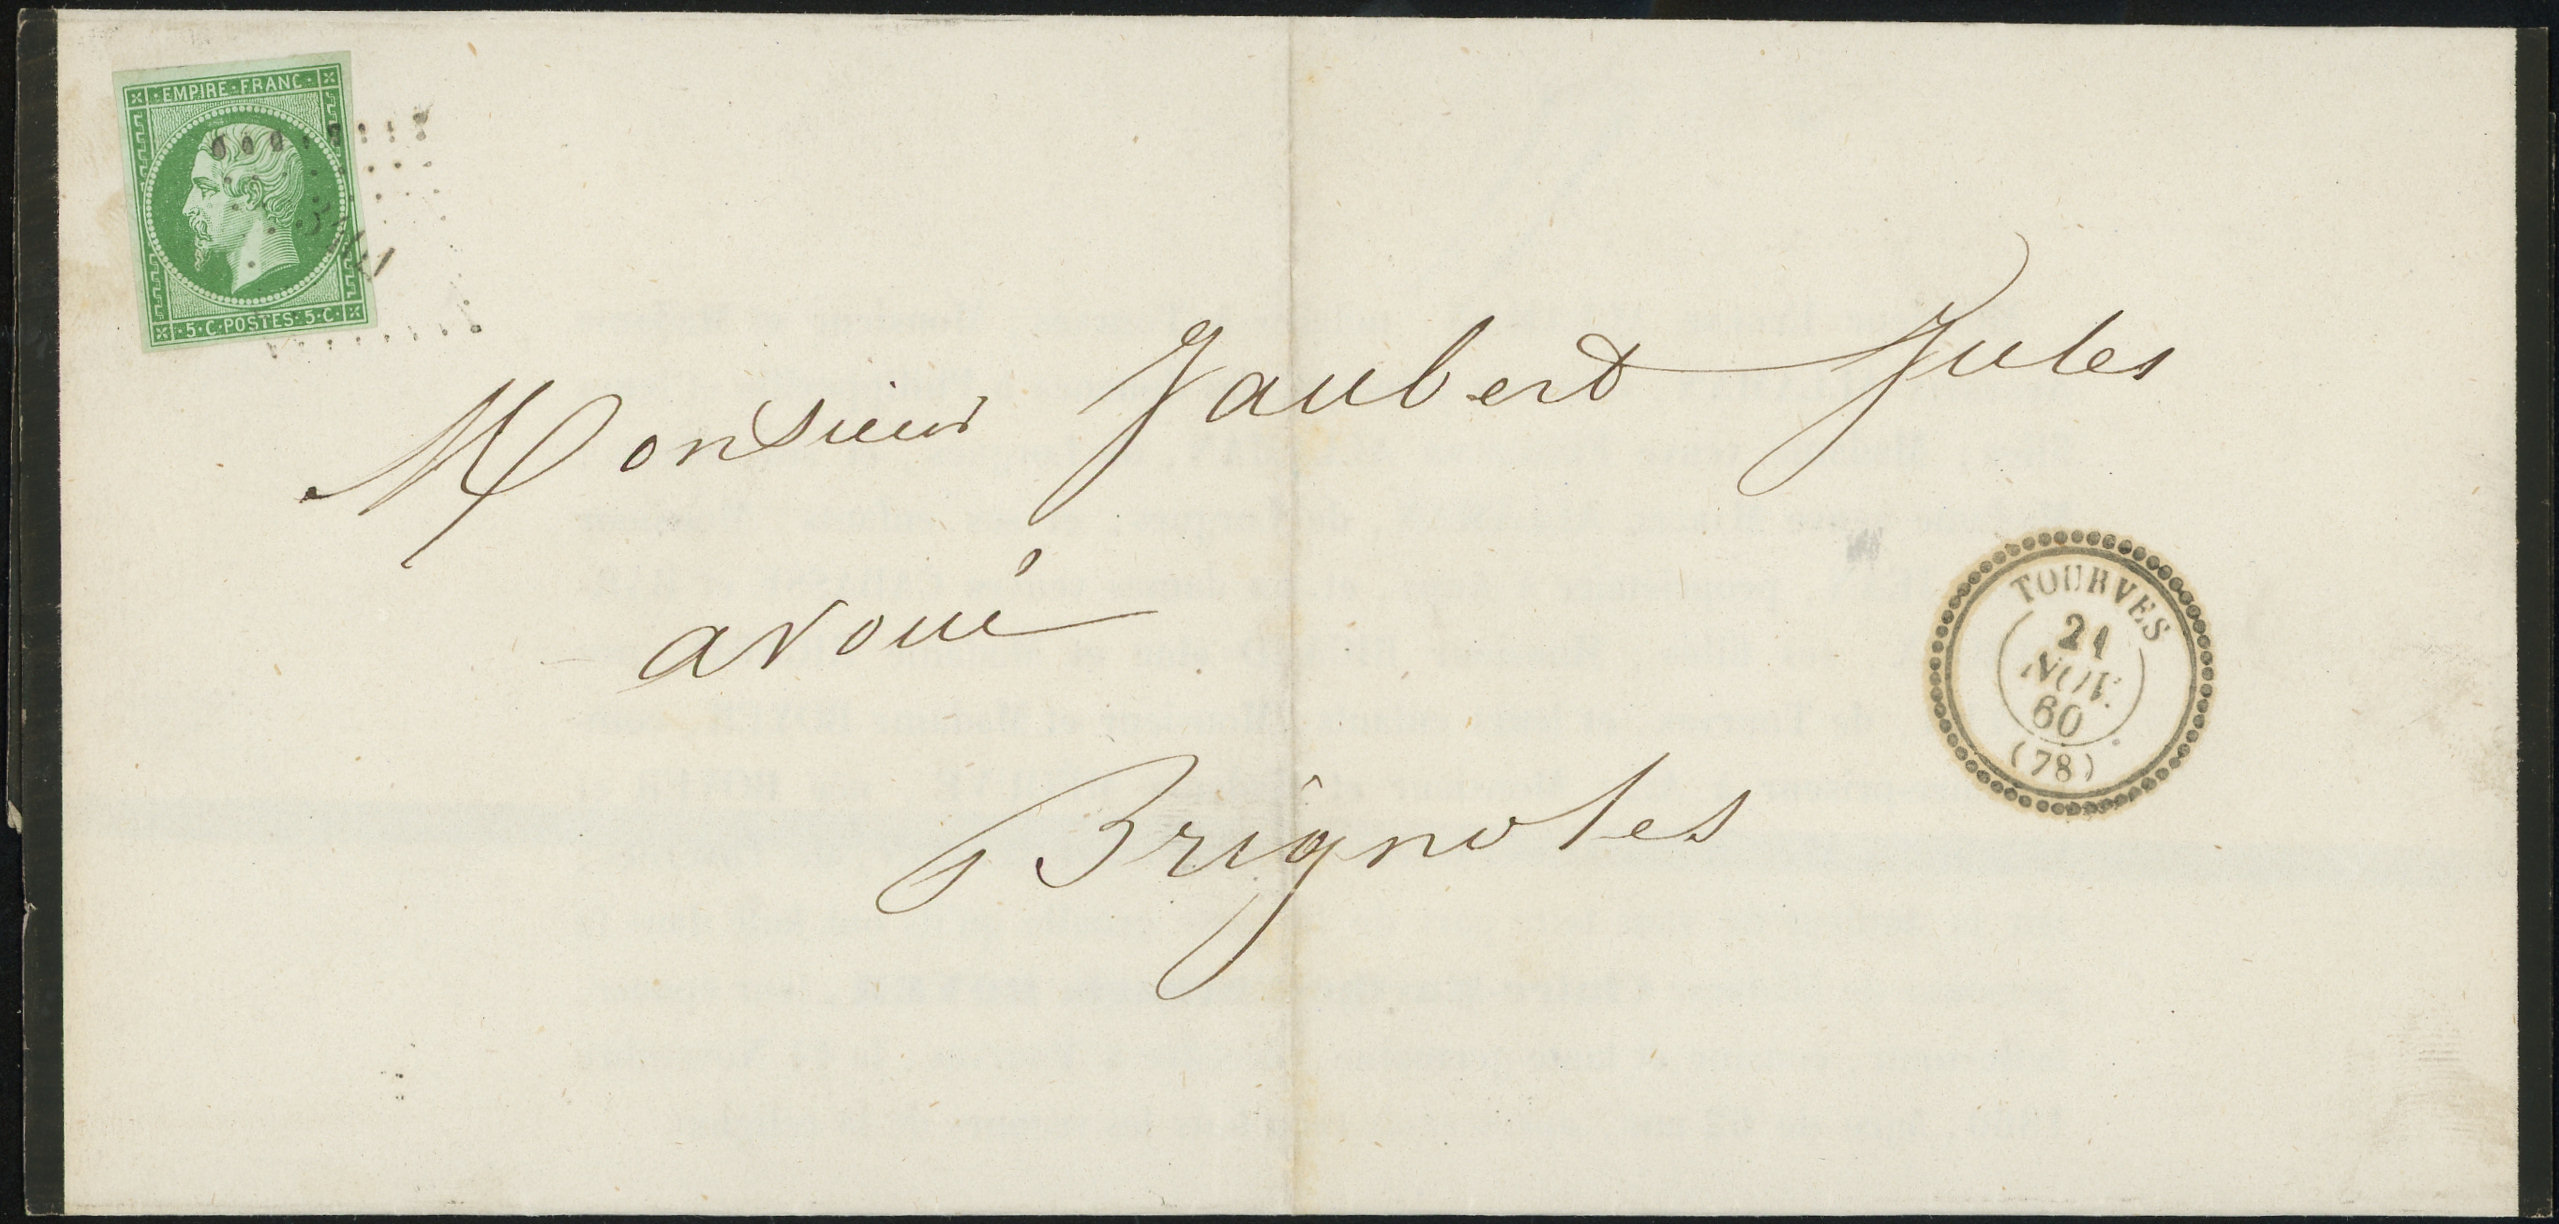 EMPIRE·FRANC·
·5·C·POSTES·5·C·
Monsieur Jaubert Jules
avoué
Brignoles
TOURVES
21
NOV.
60
(78)